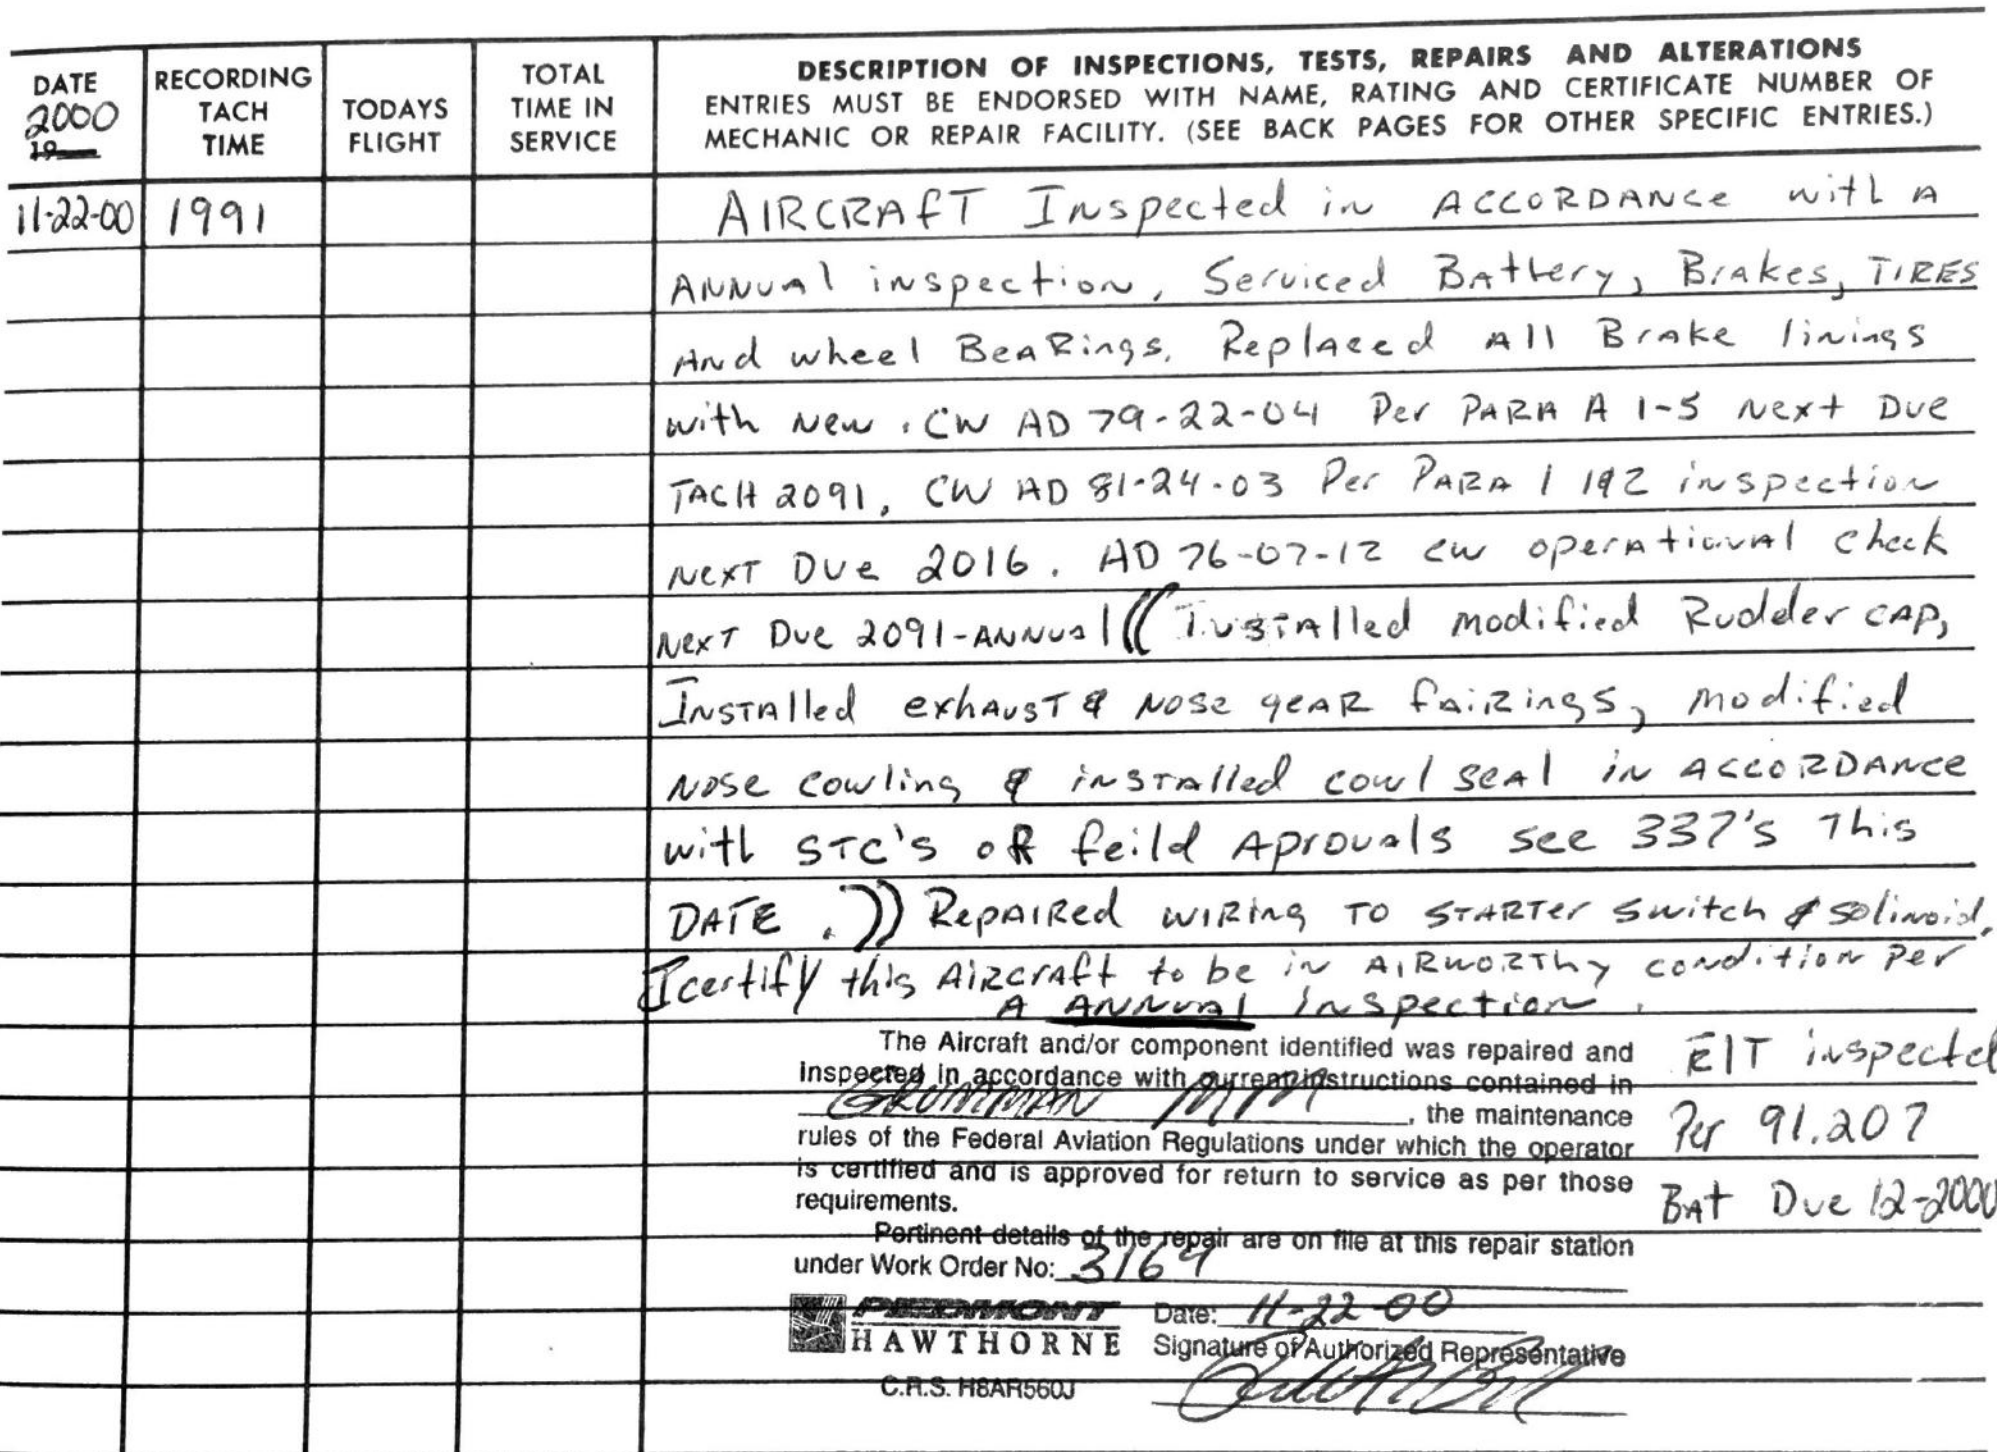 DATE
2000
19
RECORDING
TACH
TIME
TODAYS
FLIGHT
TOTAL
TIME IN
SERVICE
DESCRIPTION OF INSPECTIONS, TESTS, REPAIRS AND ALTERATIONS
ENTRIES MUST BE ENDORSED WITH NAME, RATING AND CERTIFICATE NUMBER OF
MECHANIC OR REPAIR FACILITY. (SEE BACK PAGES FOR OTHER SPECIFIC ENTRIES.)
11-22-00 1991 AIRCRAfT Inspected in ACCORDANce with A
ANNUAl inspection, Serviced BAttery, BrAkes, TIRES
And wheel BeARings. ReplAced All BrAke linings
with New. CW AD 79-22-04 Per PARA A 1-5 Next Due
TACH 2091, CW AD 81-24-03 Per PARA 1 1&2 inspection
NexT Due 2016. AD 76-07-12 cw operAtionAl check
NexT Due 2091-ANNuAl (( InsTAlled modified Rudder CAP,
InsTAlled exhAusT & Nose geAR fAiRings, modified
Nose cowling & insTAlled cowl seAl in ACCORDANce
with STC's oR feild AprovAls see 337's This
DATE. )) RepAIRed wIRing TO STARTer switch & solinoid,
I certify this AIRcrAft to be in AIRwORThy condition Per
A ANNUAl inspection.
The Aircraft and/or component identified was repaired and
inspected in accordance with current instructions contained in
GRUMMAN M/M, the maintenance
rules of the Federal Aviation Regulations under which the operator
is certified and is approved for return to service as per those
requirements.
Pertinent details of the repair are on file at this repair station
under Work Order No: 3169
ElT inspected
Per 91.207
BAt Due 12-2000
PIEDMONT
HAWTHORNE
C.R.S. H8AR560J
Date: 11-22-00
Signature of Authorized Representative